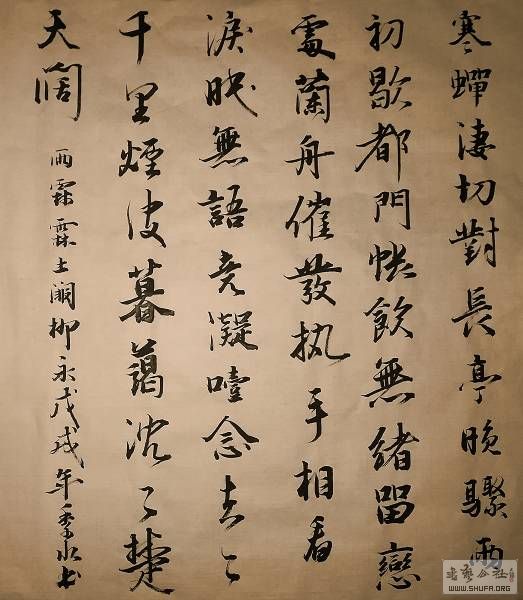 寒蟬淒切對長亭晚驟雨
初歇都門帳飲無緒留戀
處蘭舟催發執手相看
淚眼無語竟凝噎念去々
千里煙波暮藹沈々楚
天闊
雨霖霖上闋柳永戊戌年水书
书艺公社
WWW.SHUFA.ORG